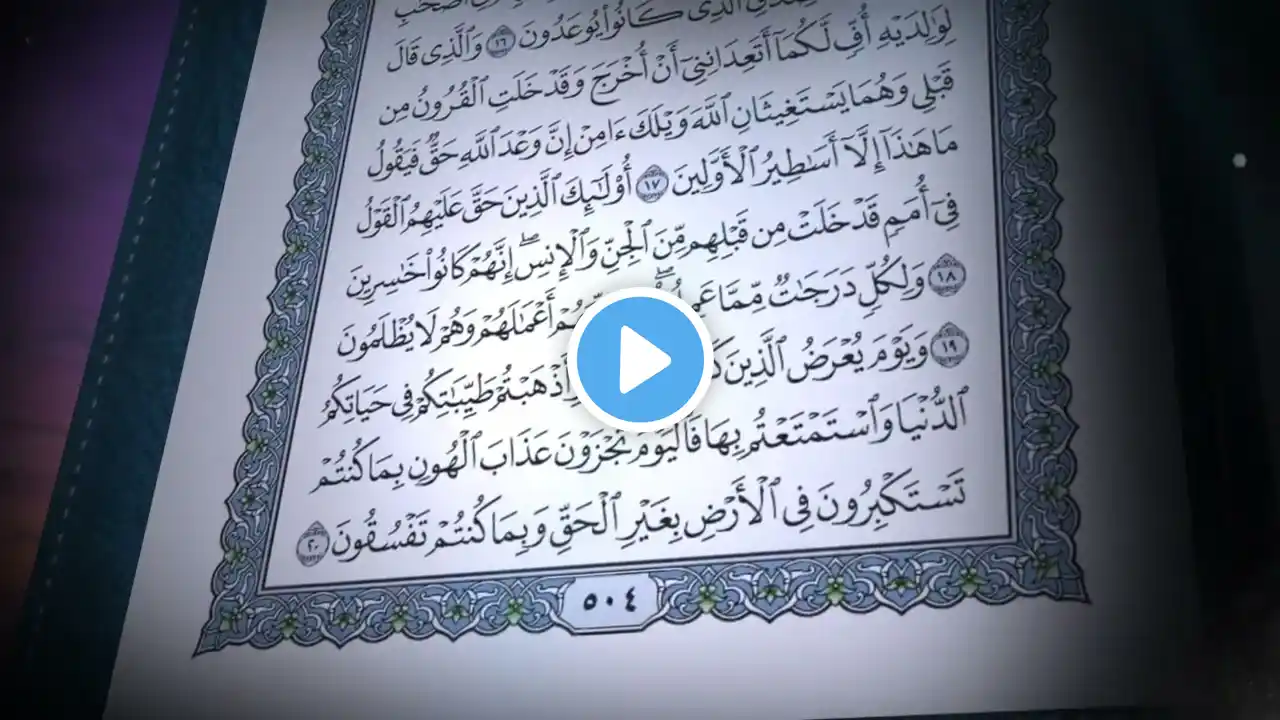 ٱلَّذِى كَانُوا۟ يُوعَدُونَ ١٦ وَٱلَّذِى قَالَ
لِوَٰلِدَيْهِ أُفٍّ لَّكُمَآ أَتَعِدَانِنِىٓ أَنْ أُخْرَجَ وَقَدْ خَلَتِ ٱلْقُرُونُ مِن
قَبْلِى وَهُمَا يَسْتَغِيثَانِ ٱللَّهَ وَيْلَكَ ءَامِنْ إِنَّ وَعْدَ ٱللَّهِ حَقٌّ فَيَقُولُ
مَا هَٰذَآ إِلَّآ أَسَٰطِيرُ ٱلْأَوَّلِينَ ١٧ أُو۟لَٰٓئِكَ ٱلَّذِينَ حَقَّ عَلَيْهِمُ ٱلْقَوْلُ
فِىٓ أُمَمٍ قَدْ خَلَتْ مِن قَبْلِهِم مِّنَ ٱلْجِنِّ وَٱلْإِنسِ ۖ إِنَّهُمْ كَانُوا۟ خَٰسِرِينَ
١٨ وَلِكُلٍّ دَرَجَٰتٌ مِّمَّا أَعْمَٰلَهُمْ وَهُمْ لَا يُظْلَمُونَ
١٩ وَيَوْمَ يُعْرَضُ ٱلَّذِينَ أَذْهَبْتُمْ طَيِّبَٰتِكُمْ فِى حَيَاتِكُمُ
ٱلدُّنْيَا وَٱسْتَمْتَعْتُم بِهَا فَٱلْيَوْمَ تُجْزَوْنَ عَذَابَ ٱلْهُونِ بِمَا كُنتُمْ
تَسْتَكْبِرُونَ فِى ٱلْأَرْضِ بِغَيْرِ ٱلْحَقِّ وَبِمَا كُنتُمْ تَفْسُقُونَ ٢٠
٥٠٤